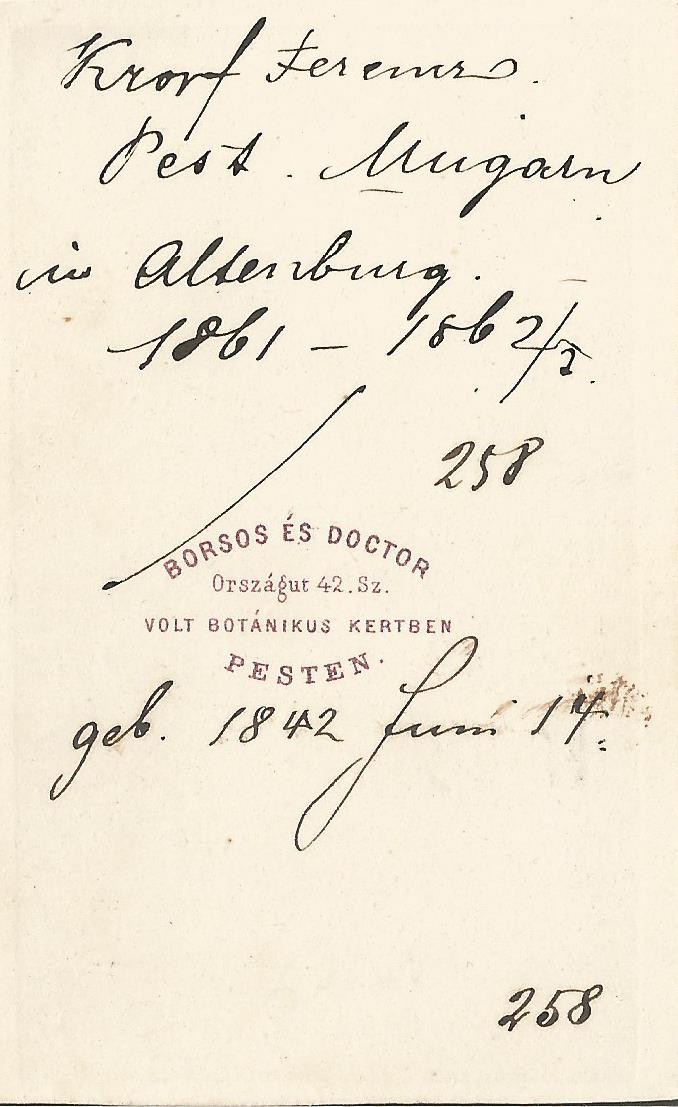 Kropf Ferencz.
Pest. Ungarn
in Altenburg.
1861 – 1862/3.
258
BORSOS ÉS DOCTOR
Országut 42. Sz.
VOLT BOTÁNIKUS KERTBEN
PESTEN.
geb. 1842 Juni 14.
258